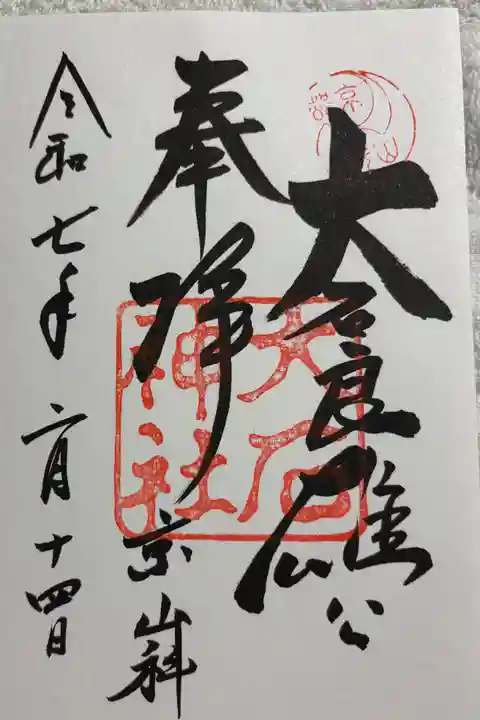 大石良雄公
奉拝
京山科
令和七年二月十四日
大石
神社